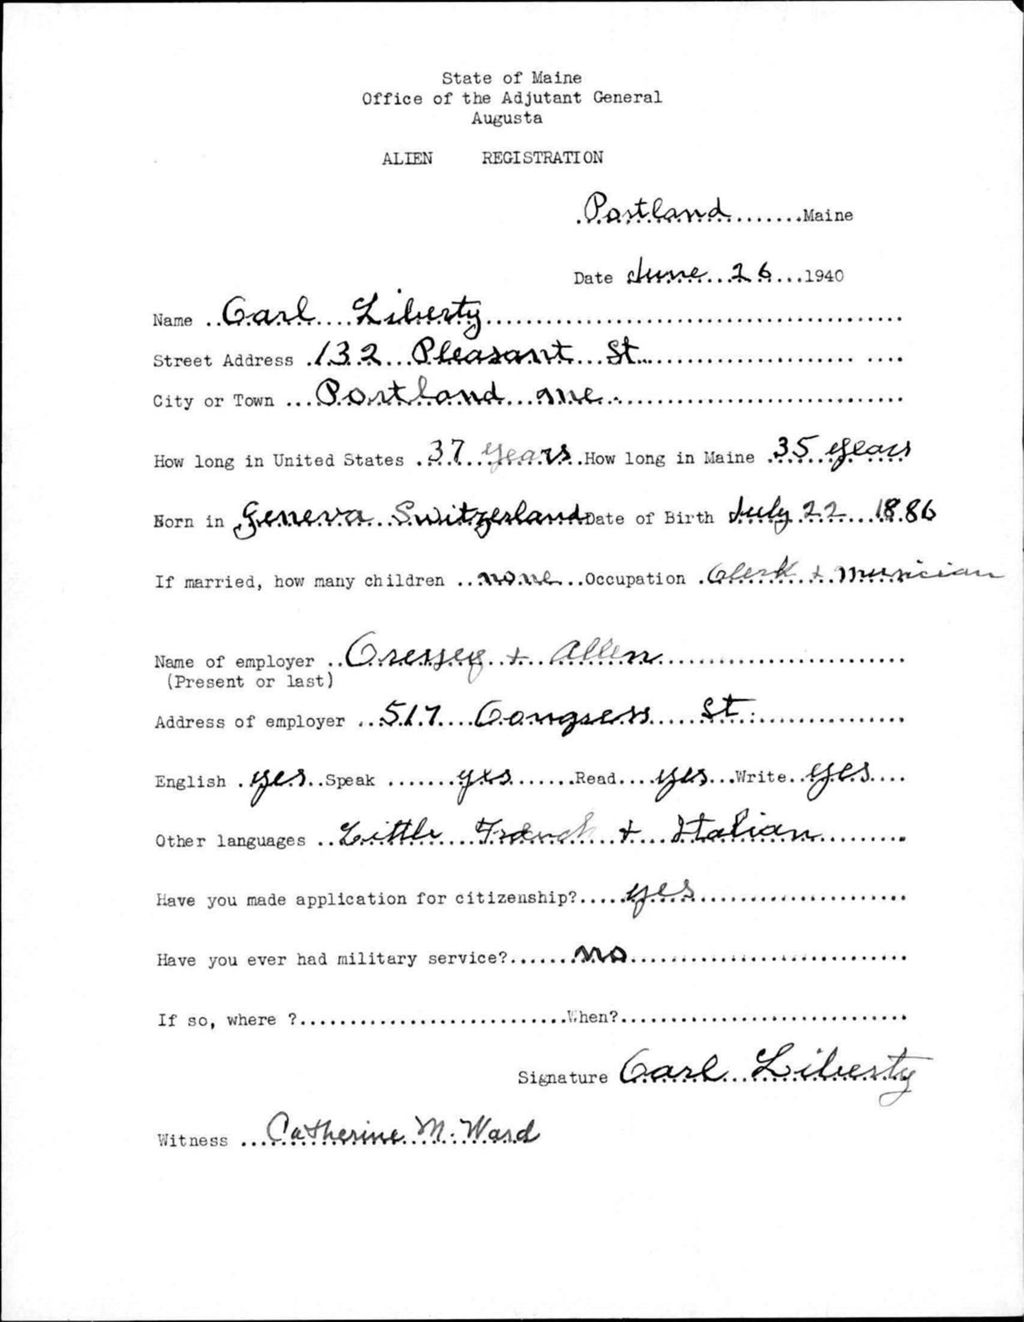 State of Maine
Office of the Adjutant General
Augusta
ALIEN REGISTRATION
Portland Maine
Date June 26 1940
Name Carl Liberty
Street Address 132 Pleasant St.
City or Town Portland Me.
How long in United States 37 years How long in Maine 35 years
Born in Geneva Switzerland Date of Birth July 22 1886
If married, how many children none Occupation Clerk + musician
Name of employer Cressey + Allen
(Present or last)
Address of employer 517 Congress St.
English yes Speak yes Read yes Write yes
Other languages Little French + Italian
Have you made application for citizenship? yes
Have you ever had military service? no
If so, where ? When?
Signature Carl Liberty
Witness Catherine M. Ward